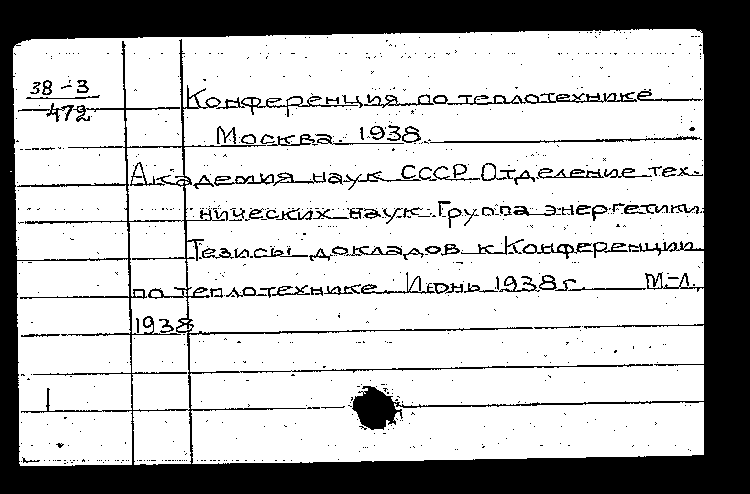 38-3
472
Конференция по теплотехнике
Москва. 1938.
Академия наук СССР. Отделение тех-
нических наук. Группа энергетики.
Тезисы докладов к Конференции
по теплотехнике. Июнь 1938 г. М.-Л.,
1938.
1